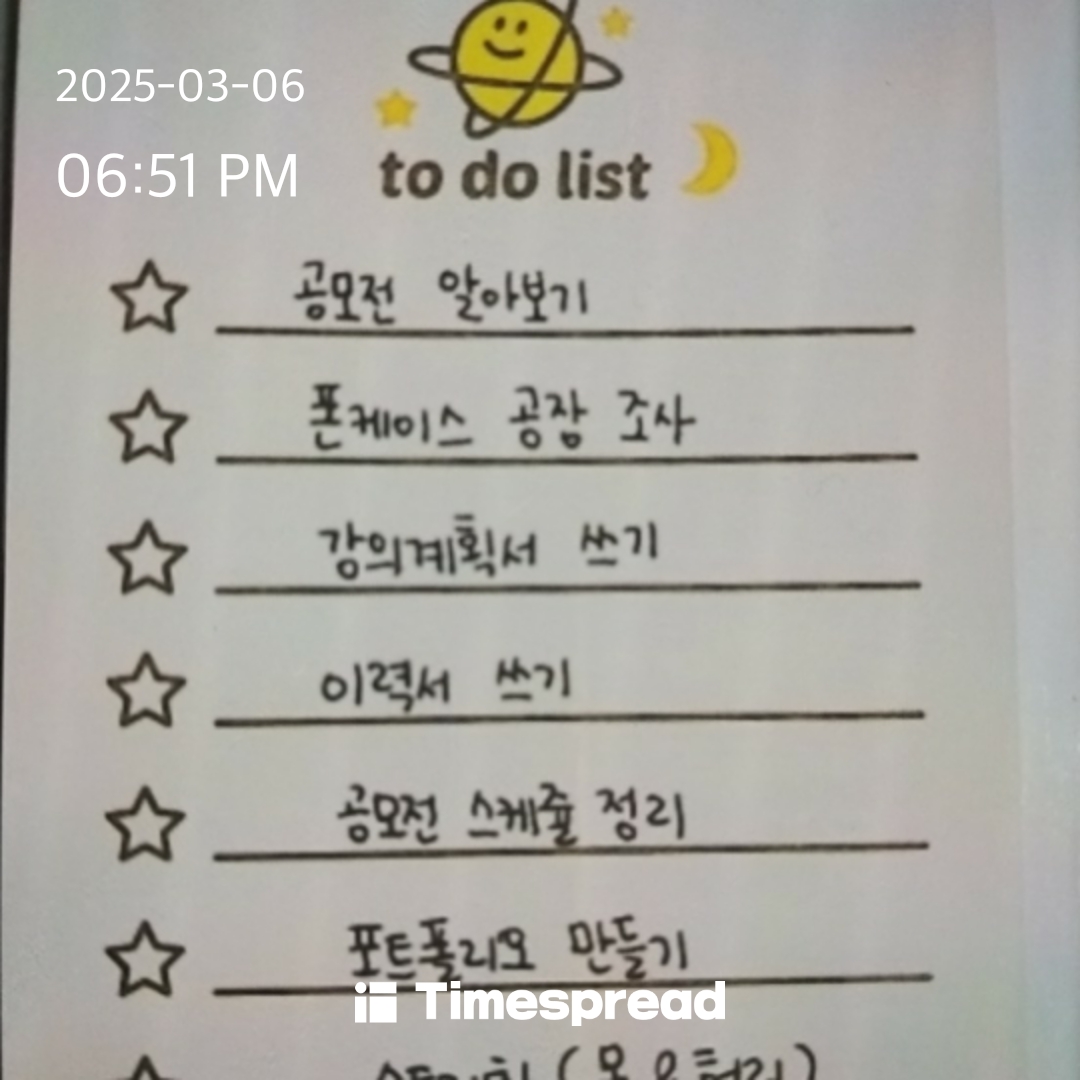 2025-03-06
06:51 PM
to do list
공모전 알아보기
폰케이스 공장 조사
강의계획서 쓰기
이력서 쓰기
공모전 스케쥴 정리
포트폴리오 만들기
Timespread